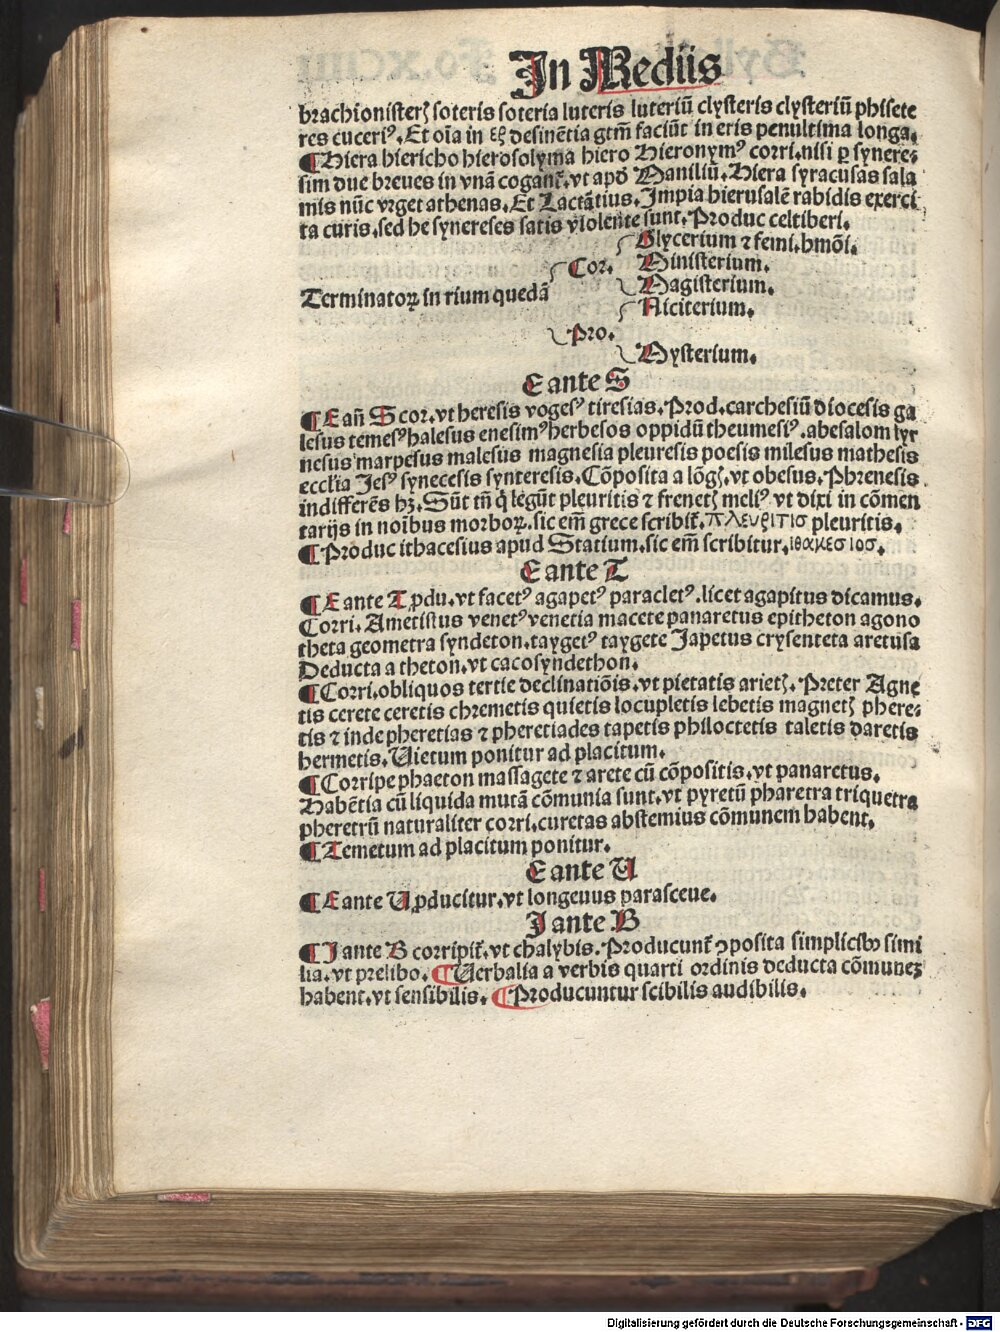 In Mediis
brachionisterꝭ soteris soteria luteris luteriū clysteris clysteriū phisete
res euceriꝰ. Et oīa in ꝭ desinētia gtm̄ faciūt in eris penultima longa.
¶ Hiera hiericho hierosolyma hiero Hieronymꝰ corri. nisi ꝑ synere⸗
sim due breues in vnā cogant̃. vt apđ Maniliū. Hiera syracusas sala
mis nūc vrget athenas. Et Lactātius. Impia hierusalē rabidis exerci
ta curis. sed he synereses satis violente sunt. Produc celtiberi.
Glycerium ⁊ femi. hmōi.
Cor. Ministerium.
Magisterium.
Terminatoꝝ in rium quedā
Niciterium.
Pro.
Mysterium.
E ante S
¶ E an̄ S cor. vt heresis vogesꝰ tiresias. Prod. carchesiū diocesis ga
lesus temesꝰ halesus enesimꝰ herbesos oppidū theumesiꝰ. abesalom lyr
nesus marpesus malesus magnesia pleuresis poesis milesus mathesis
ecclīa Jesꝰ synecesis synteresis. Cōposita a lōgꝭ. vt obesus. Phrenesis
indifferēs hꝫ. Sūt tn̄ q̇ legūt pleuritis ⁊ frenetꝭ meliꝰ vt dixi in cōmen
tarijs in noībus morboꝝ. sic em̄ grece scribit̃. πλευριτισ pleuritis.
¶ Produc ithacesius apud Statium. sic em̄ scribitur. ιθακεσιοσ.
E ante T
¶ E ante T ꝓdu. vt facetꝰ agapetꝰ paracletꝰ. licet agapitus dicamus.
Corri. Ametistus venetꝰ venetia macete panaretus epitheton agono
theta geometra syndeton. taygetꝰ taygete Japetus crysenteta aretusa
Deducta a theton. vt cacosyndethon.
¶ Corri. obliquos tertie declinatiōis. vt pietatis arietꝭ. Preter Agne
tis cerete ceretis chremetis quietis locupletis lebetis magnetꝭ phere⸗
tis ⁊ inde pheretias ⁊ pheretiades tapetis philoctetis taletis daretis
hermetis. Uietum ponitur ad placitum.
¶ Corripe phaeton massagete ⁊ arete cū cōpositis. vt panaretus.
Habētia cū liquida mutā cōmunia sunt. vt pyretū pharetra triquetra
pheretrū naturaliter corri. curetas abstemius cōmunem habent.
¶ Temetum ad placitum ponitur.
E ante U
¶ E ante U ꝓducitur. vt longeuus parasceue.
I ante B
¶ I ante B corripit̃. vt chalybis. Producunt̃ ꝯposita simplicibꝰ simi
lia. vt prelibo. ¶ Uerbalia a verbis quarti ordinis deducta cōmunez
habent. vt sensibilis. ¶ Producuntur scibilis audibilis.
Digitalisierung gefördert durch die Deutsche Forschungsgemeinschaft - DFG